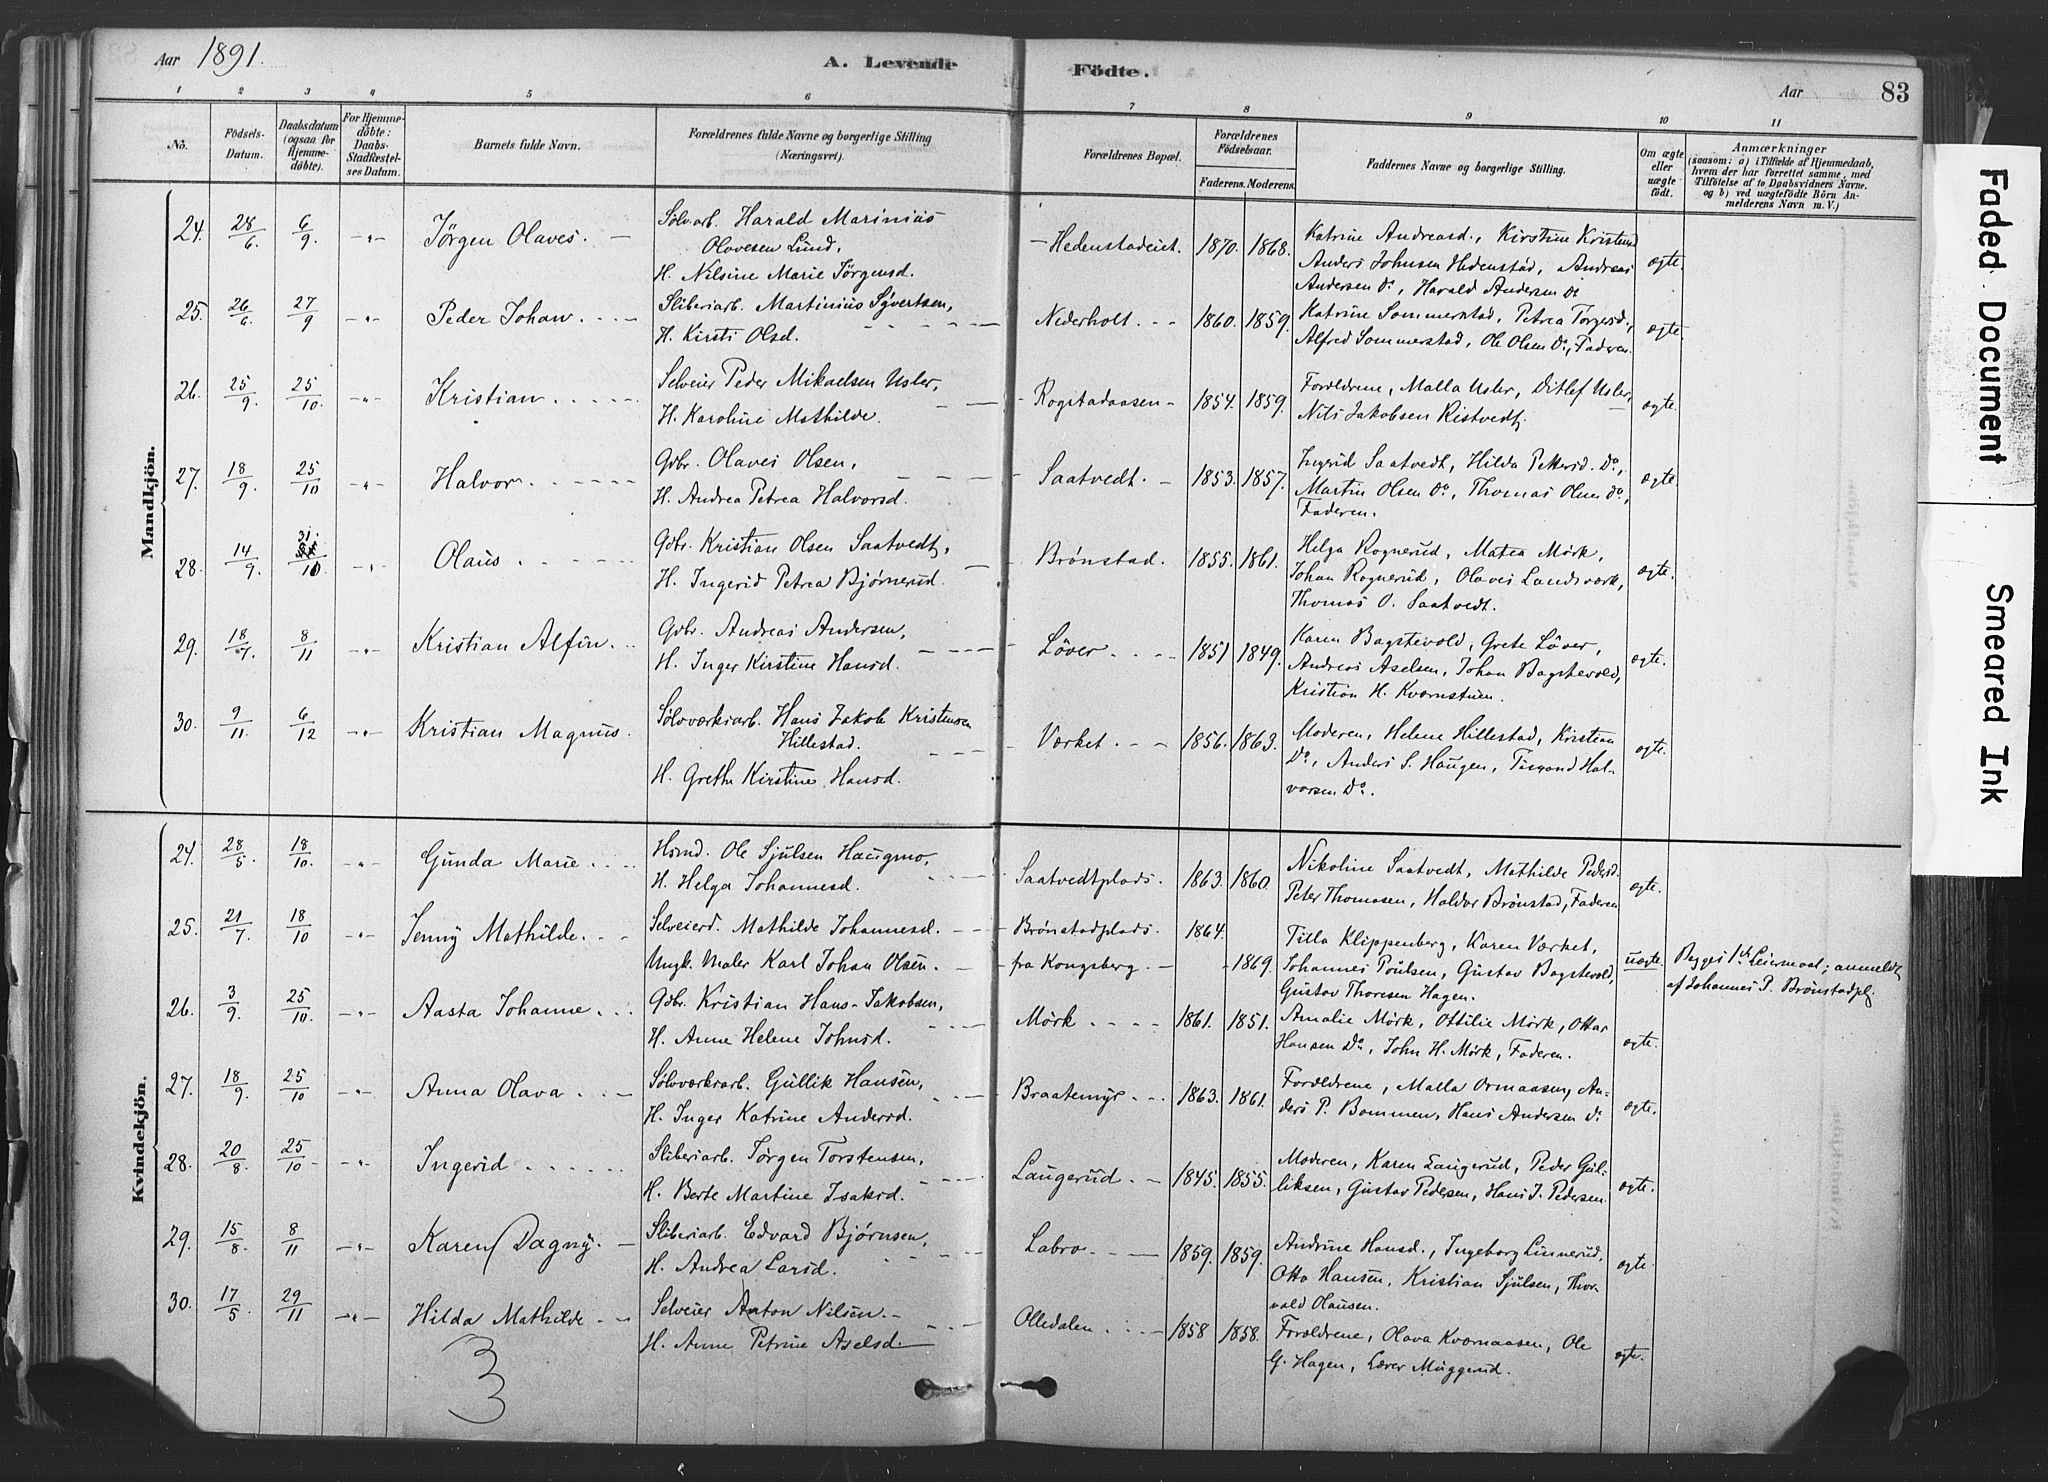 Aar 1891.
A. Levende Födte.
Aar
83
1 2 3 4 5 6 7 8 9 10 11
No.
Födsels-Datum.
Daabsdatum (ogsaa for Hjemmedöbte).
For Hjemmedöbte: Daabs-Stadfæstelses Datum.
Barnets fulde Navn.
Forældrenes fulde Navne og borgerlige Stilling (Næringsvei).
Forældrenes Bopæl.
Forældrenes Födselsaar.
Faderens. Moderens.
Faddernes Navne og borgerlige Stilling.
Om ægte eller uægte födt.
Anmærkninger
(saasom: a) i Tilfælde af Hjemmedaab, hvem der har forrettet samme, med Tilföielse af to Daabsvidners Navne. og b) ved uægtefödt Börn Anmelderens Navn m. V.)
Mandkjön.
24. 28/6. 6/9. -"- Jørgen Olaves. Sølvarb. Harald Marinius
Olavesen Lund,
H. Nilsine Marie Jørgensd.
Hedenstadeiet. 1870. 1868.
Katrine Andreasd., Kirstine Kristensd
Anders Johnsen Hedenstad, Andreas
Andersen Do, Harald Andersen Do
ægte.
25. 26/6. 27/9 -"- Peder Johan. Sliberiarb. Martinius Syvertsen,
H. Kirsti Olsd.
Nederholt. 1860. 1859.
Katrine Sommerstad, Petrea Torgersd.,
Alfred Sommerstad, Ole Olsen Do, Faderen.
ægte.
26. 25/9. 25/10. -"- Kristian. Selveier Peder Mikaelsen Usler,
H. Karoline Mathilde.
Rogstadaasen 1854. 1859.
Forældrene, Malla Usler, Ditlef Usler,
Nils Jakobsen Ristvedt.
ægte.
27. 18/9. 25/10 -"- Halvor. Gdbr. Olaves Olsen,
H. Andrea Petrea Halvorsd.
Saatvedt. 1853. 1857.
Ingerid Saatvedt, Hilda Pettersd. Do,
Martin Olsen Do, Thomas Olsen Do,
Faderen.
ægte.
28. 14/9. 31/10 -"- Olaus. Gdbr. Kristian Olsen Saatvedt,
H. Ingerid Petrea Bjørnerud.
Brønstad. 1855. 1861.
Helga Rognerud, Matea Mørk,
Johan Rognerud, Olaves Landsværk,
Thomas O. Saatvedt.
ægte.
29. 18/7. 8/11 -"- Kristian Alfin. Gdbr. Andreas Andersen,
H. Inger Kirstine Hansd.
Løver. 1851 1849.
Karen Bagstevold, Grete Løver,
Andreas Axelsen, Johan Bagstevold,
Kristian H. Kværnstuen.
ægte.
30. 9/11. 6/12 -"- Kristian Magnus. Sølvværksarb. Hans Jakob Kristensen
Hillestad.
H. Grethe Kirstine Hansd.
Værket. 1856. 1863.
Moderen, Helene Hillestad, Kristian
Do, Anders S. Haugen, Tisrand Hal-
vorsen Do.
ægte.
Kvindekjön.
24. 28/5. 18/10. -"- Gunda Marie. Hsmd. Ole Sjulsen Haugmo,
H. Helga Johannesd.
Saatvedtplads. 1863. 1860.
Nikoline Saatvedt, Mathilde Pedersd.
Peter Thomasen, Haldor Brønstad, Faderen
ægte.
25. 21/7. 18/10 -"- Jenny Mathilde. Selveierd. Mathilde Johannesd.
Ungk. Maler Karl Johan Olsen.
Brønstadplads. 1864.
fra Kongsberg. 1869.
Tilla Klippenberg, Karen Værket,
Johannes Poulsen, Gustav Bagstevold,
Gustav Thoresen Hagen.
uægte.
Begges 1ste Leiermaal; anmeldt
af Johannes P. Brønstadpl.
26. 3/9. 25/10. -"- Aasta Johanne. Gdbr. Kristian Hans-Jakobsen,
H. Anne Helene Johnsd.
Mörk. 1861. 1851.
Amalie Mörk, Ottilie Mörk, Ottar
Hansen Do, John H. Mørk, Faderen.
ægte.
27. 18/9. 25/10 -"- Anna Olava. Sølvværksarb. Gullik Hansen,
H. Inger Katrine Andersd.
Braatemyr. 1863. 1861.
Forældrene, Malla Ormaasen, An-
ders P. Bommen, Hans Andersen Do
ægte.
28. 20/8. 25/10 -"- Ingerid Sliberiarb. Jørgen Torstensen,
H. Berte Martine Isaksd.
Laugerud. 1845. 1855.
Moderen, Karen Laugerud, Peder Gul-
liksen, Gustav Pedersen, Hans J. Pedersen.
ægte.
29. 15/8. 8/11 -"- Karen Dagny. Sliberiarb. Edvard Bjørnsen,
H. Andrea Larsd.
Labro. 1859. 1859.
Andrine Hansd., Ingeborg Linnerud,
Otto Hansen, Kristian Sjulsen, Thor-
vald Olausen.
ægte.
30. 17/5. 29/11 -"- Hilda Mathilde Selveier Anton Nilsen.
H. Anne Petrine Axelsd.
Olledalen. 1858 1858.
Forældrene, Olava Kværnaasen, Ole
G. Hagen, Lærer Muggerud.
ægte.
3
Faded Document
Smeared Ink